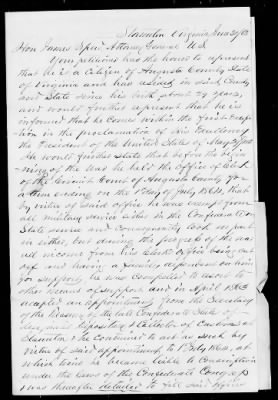 Staunton Virginia June 29/65
Hon James Speed Attorney General U.S.
Your petitioner has the honor to represent
that he is a citizen of Augusta County State
of Virginia and has resided in said County
and State since his birth about 29 years,
and would further represent that he is
informed that he comes within the first Excep-
tion in the proclamation of his Excellency
the President of the United States of May 29/65
He would further state that before the begin-
ning of the War he held the office of Clerk
of the Circuit Court of Augusta County for
a time ending on the 1st day of July 1864, that
by virtue of said office he was exempt from
all military service either in the Confederate or
State service and consequently took no part
in either, but during the progress of the war
all income from his Clerk's Office being cut
off and having a family dependent on him
for support, he was compelled to resort to
other means of support and in April 1863
accepted an appointment from the Secretary
of the Treasury of the late Confederate States of
America, Depositary & Collector of Customs at
Staunton & he continued to act as such by
virtue of said appointment, to 1st July 1864, at
which time he became liable to Conscription
under the laws of the Confederate Congress
& was thereafter detailed to fill said